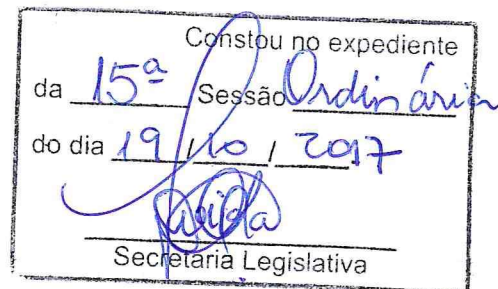 Constou no expediente
da 15ª Sessão Ordinária
do dia 19 / 10 / 2017
Secretaria Legislativa